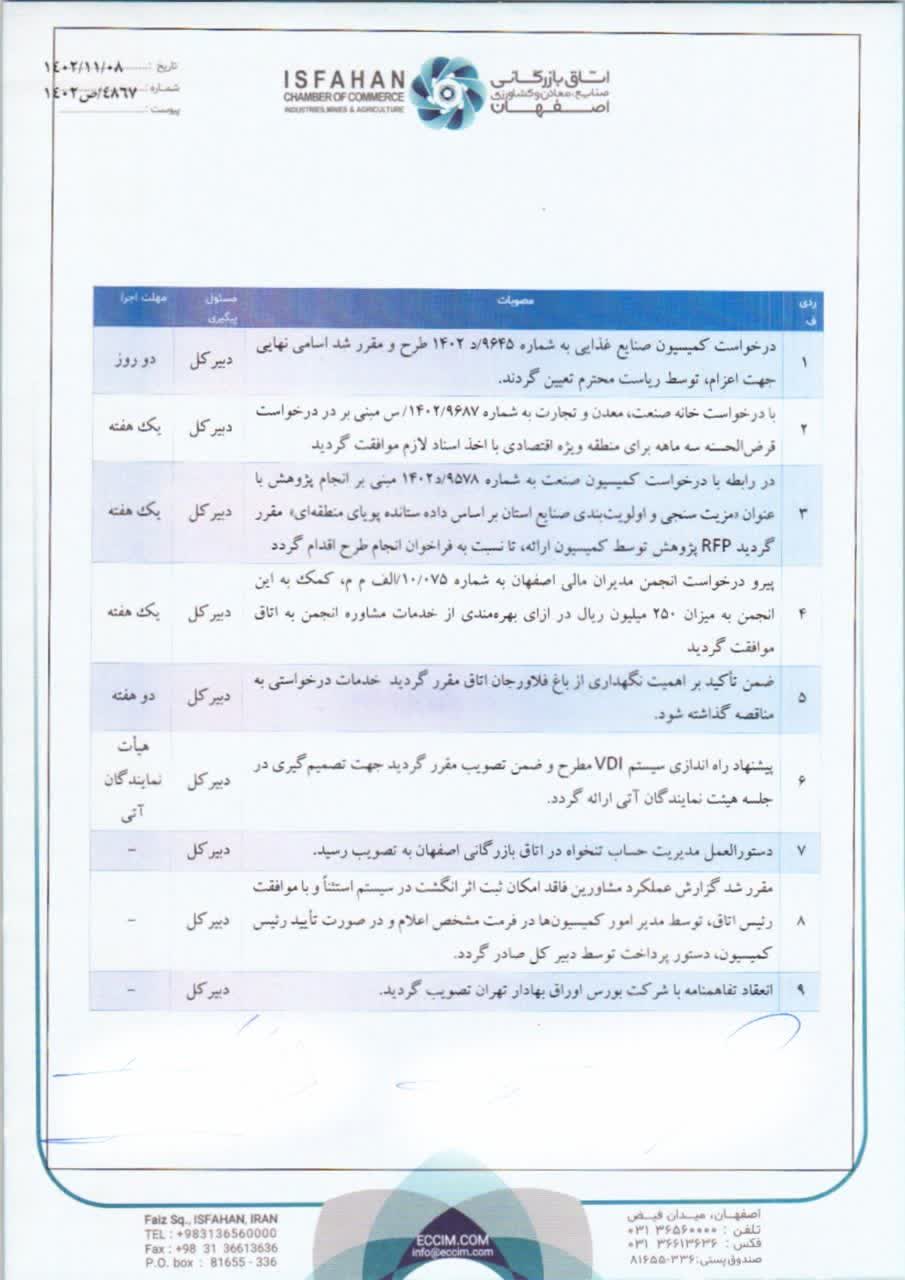 تاریخ : ۱۴۰۲/۱۱/۰۸
شماره: ۴۸۶۷/ص۱۴۰۲
پیوست :
ISFAHAN
CHAMBER OF COMMERCE
INDUSTRIES, MINES & AGRICULTURE
اتاق بازرگانی
صنایع، معادن و کشاورزی
اصفهان
ردی
ف
مصوبات
مسئول
پیگیری
مهلت اجرا
۱
درخواست کمیسیون صنایع غذایی به شماره ۹۶۴۵/د ۱۴۰۲ طرح و مقرر شد اسامی نهایی
جهت اعزام، توسط ریاست محترم تعیین گردند.
دبیر کل
دو روز
۲
با درخواست خانه صنعت، معدن و تجارت به شماره ۱۴۰۲/۹۶۸۷/ س مبنی بر در درخواست
قرض‌الحسنه سه ماهه برای منطقه ویژه اقتصادی با اخذ اسناد لازم موافقت گردید
دبیر کل
یک هفته
۳
در رابطه با درخواست کمیسیون صنعت به شماره ۹۵۷۸/د۱۴۰۲ مبنی بر انجام پژوهش با
عنوان «مزیت سنجی و اولویت‌بندی صنایع استان بر اساس داده ستانده پویای منطقه‌ای» مقرر
گردید RFP پژوهش توسط کمیسیون ارائه، تا نسبت به فراخوان انجام طرح اقدام گردد
دبیر کل
یک هفته
۴
پیرو درخواست انجمن مدیران مالی اصفهان به شماره ۱۰/۰۷۵/الف م م، کمک به این
انجمن به میزان ۲۵۰ میلیون ریال در ازای بهره‌مندی از خدمات مشاوره انجمن به اتاق
موافقت گردید
دبیر کل
یک هفته
۵
ضمن تأکید بر اهمیت نگهداری از باغ فلاورجان اتاق مقرر گردید خدمات درخواستی به
مناقصه گذاشته شود.
دبیر کل
دو هفته
۶
پیشنهاد راه اندازی سیستم VDI مطرح و ضمن تصویب مقرر گردید جهت تصمیم‌گیری در
جلسه هیئت نمایندگان آتی ارائه گردد.
دبیر کل
هیأت
نمایندگان
آتی
۷
دستورالعمل مدیریت حساب تنخواه در اتاق بازرگانی اصفهان به تصویب رسید.
دبیر کل
-
۸
مقرر شد گزارش عملکرد مشاورین فاقد امکان ثبت اثر انگشت در سیستم استثناً و با موافقت
رئیس اتاق، توسط مدیر امور کمیسیون‌ها در فرمت مشخص اعلام و در صورت تأیید رئیس
کمیسیون، دستور پرداخت توسط دبیر کل صادر گردد.
دبیر کل
-
۹
انعقاد تفاهمنامه با شرکت بورس اوراق بهادار تهران تصویب گردید.
دبیر کل
-
Faiz Sq., ISFAHAN, IRAN
TEL : +983136560000
Fax : +98 31 36613636
P.O. box : 81655 - 336
ECCIM.COM
info@eccim.com
اصفهان، میدان فیض
تلفن : ۳۶۵۶۰۰۰۰ ۰۳۱
فکس : ۳۶۶۱۳۶۳۶ ۰۳۱
صندوق پستی: ۳۳۶-۸۱۶۵۵